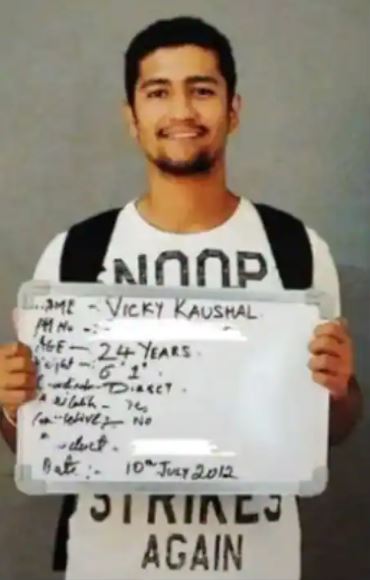 SNOOP
NAME - VICKY KAUSHAL.
PH No -:-
AGE - 24 YEARS.
Height -: 6' 1"
DIRECT.
Available - Yes
NO
Date :- 10th JULY 2012
STRIKES
AGAIN